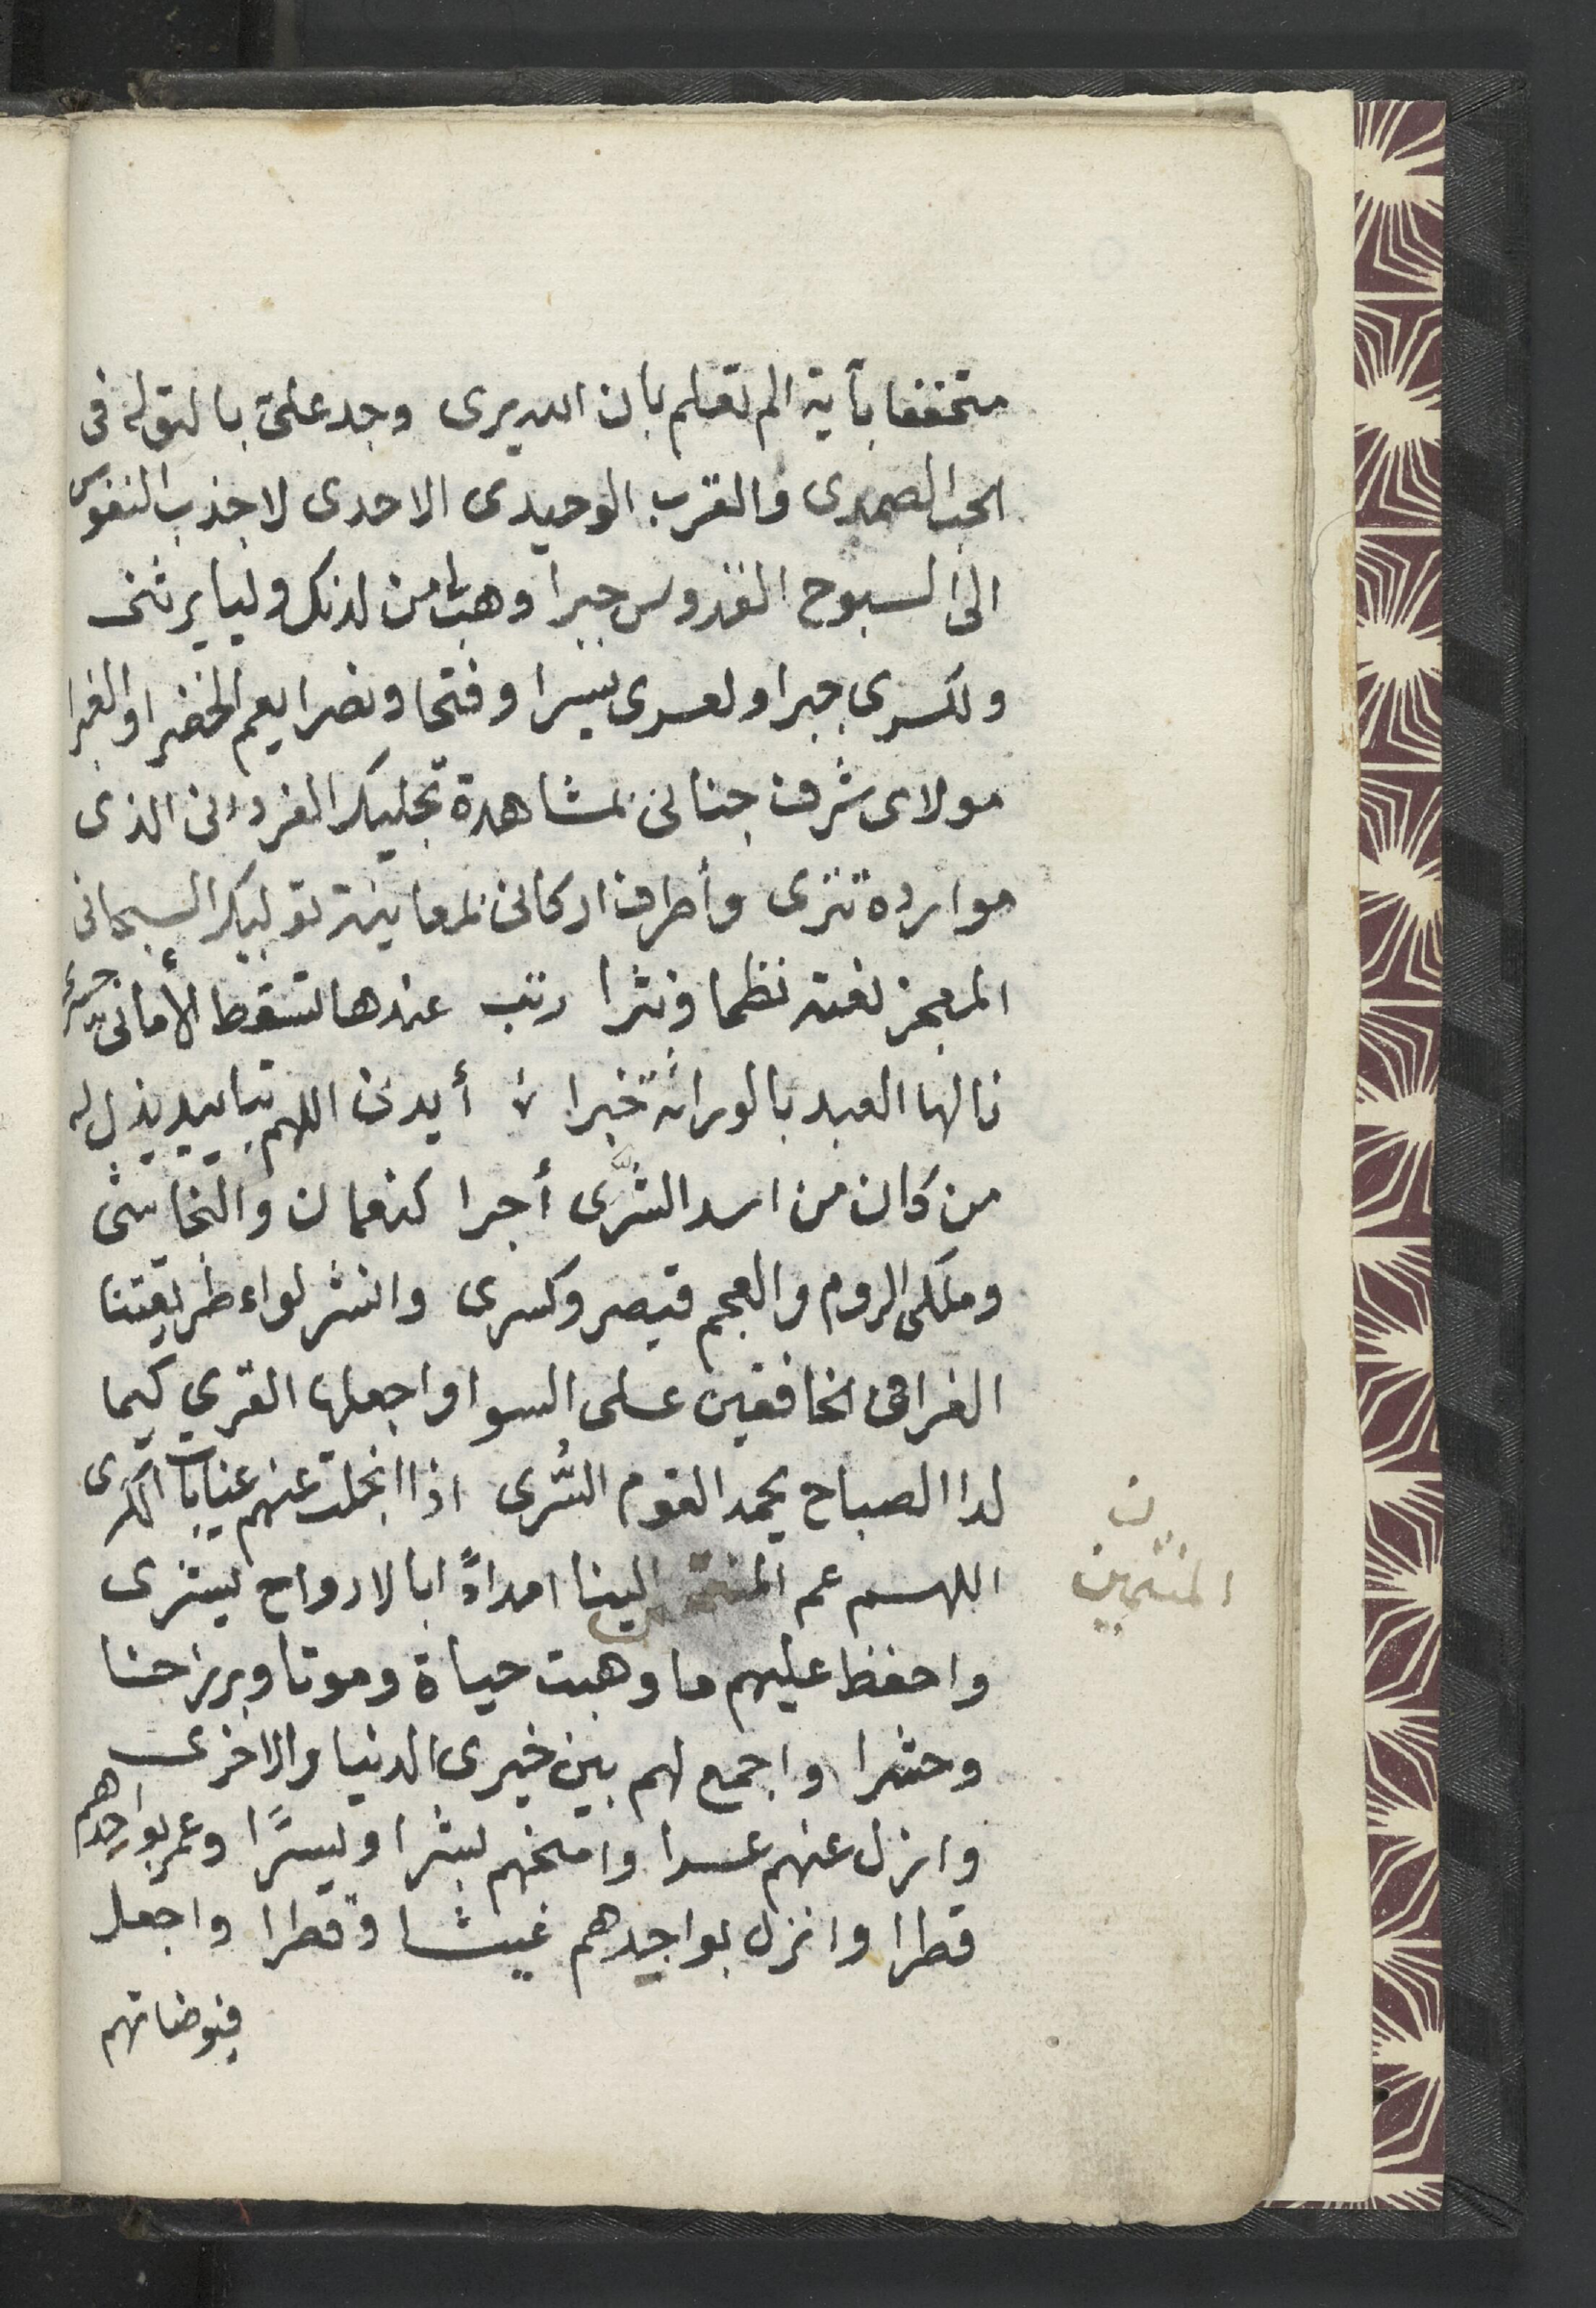 متحققا بآية الم تعلم بان الله يرى وجد علىّ بالتوله فى
الحب الصمدى والقرب الوحيدى الاحدى لاجذب النفوس
الى السبوح القدوس جبرا وهب لى من لدنك وليا يرثنى
ولكسرى جبرا ولعسرى يسرا وفتحا ونصرا يعم الخضرا والغبرا
مولاى شرف جنانى بمشاهدة تجليك الفردانى الذى
موارده تترى وأطرف اركانى بمعاينة توليك السبحانى
المعجز نعته نظما ونثرا رتب عندها تسقط الأمانى حسرى
نالها العبد بالوراثة خبرا أيدنى اللهم بتاييد يذل له
من كان من اسد الشَّرى أجرا كنعمان والنجاشى
وملكى الروم والعجم قيصر وكسرى وانشر لواء طريقتنا
الغرا فى الخافقين على السوا واجعلها القرى كيما
لدا الصباح يحمد القوم السُّرى اذا انجلت عنهم غيابات الكرى
اللهم عم المنتمين الينا امدادًا بالارواح يشرى
المنتمين ن
واحفظ عليهم ما وهبت حياة وموتا وبرزخنا
وحشرا واجمع لهم بين خيرى الدنيا والاخرى
وازل عنهم عسرا وامنحهم بشرا ويسرًا وعمر بواجدهم
قطرا وانزل بواجدهم غيثا وقطرا واجعل
فيوضاتهم